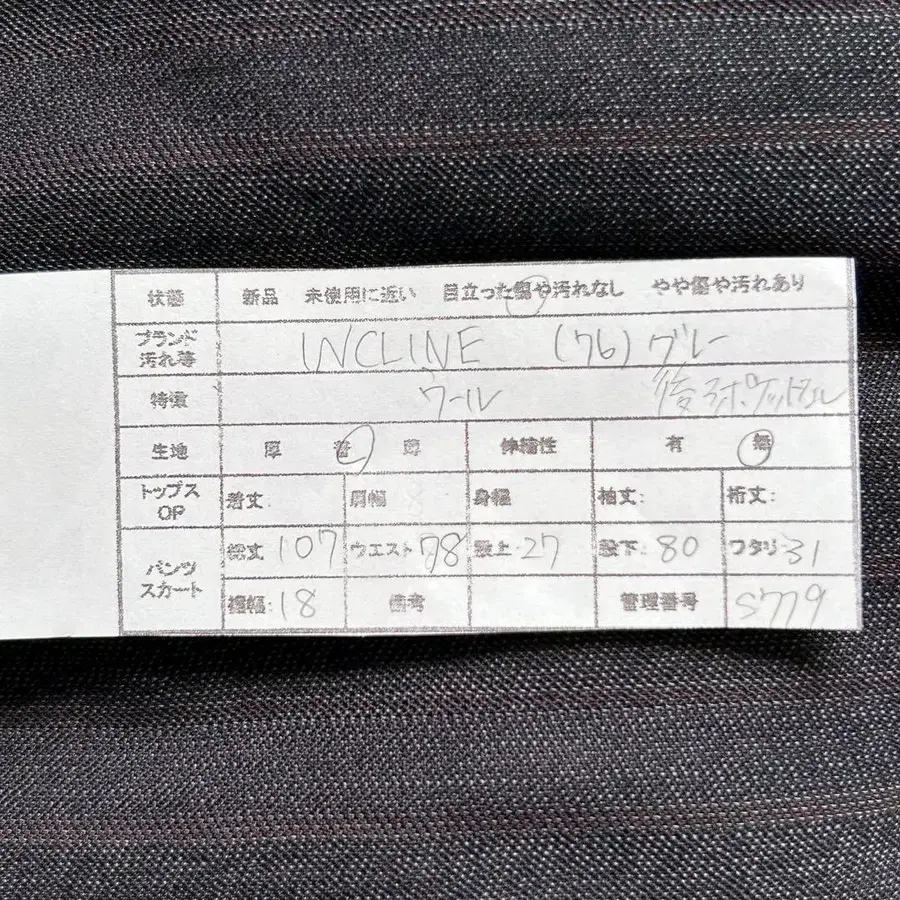 状態 新品 未使用に近い 目立った傷や汚れなし やや傷や汚れあり
ブランド 汚れ等 INCLINE (76) グレー
特徴 ウール
生地 厚 普 薄 伸縮性 有 無
トップス OP 着丈: 肩幅 身幅 袖丈: 裄丈:
パンツ スカート 総丈 107 ウエスト 78 股上・27 股下: 80 ワタリ 31
裾幅: 18 備考 管理番号 S779